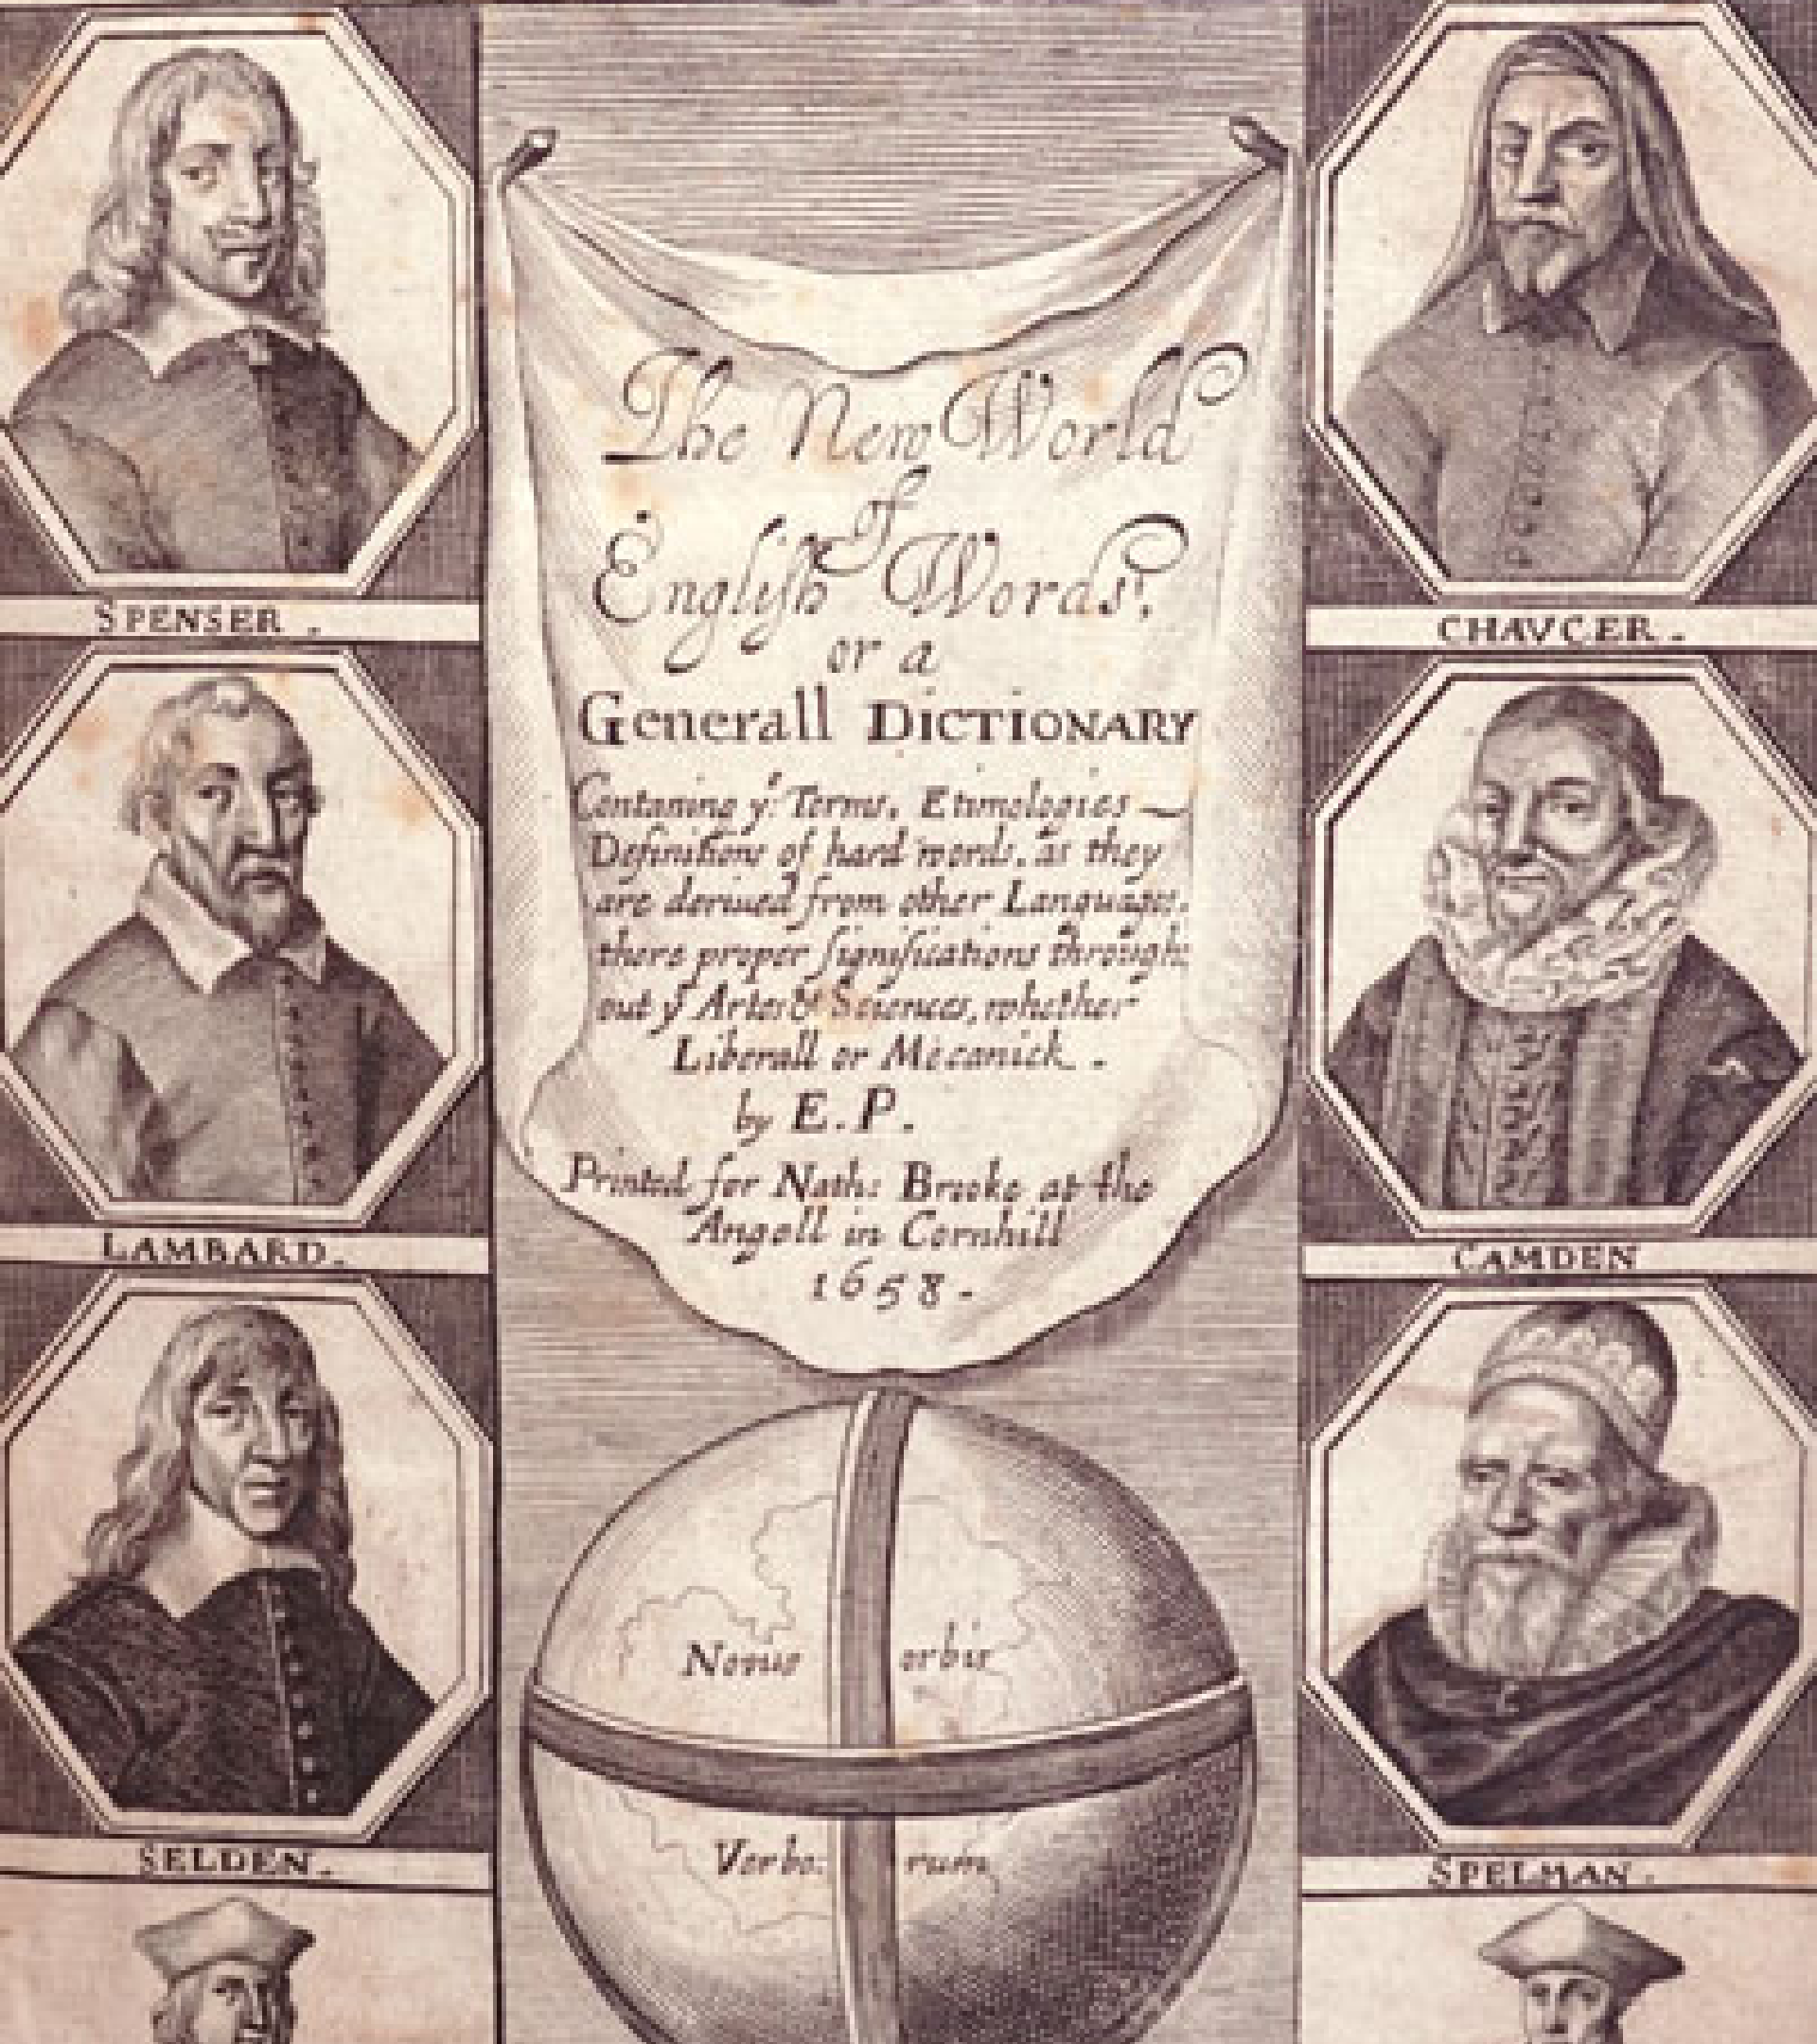 The New World
of
English Words:
or a
Generall DICTIONARY
Containing yͤ Terms, Etimologies —
Definitions of hard words, as they
are deriued from other Languages.
there proper significations through:
out yͤ Artes & Sciences, whether
Liberall or Mecanick .
by E. P.
Printed for Nath: Brooke at the
Angell in Cornhill
1658 .
SPENSER .
CHAVCER .
LAMBARD .
CAMDEN
SELDEN .
SPELMAN .
Novus orbis
Verbo: rum